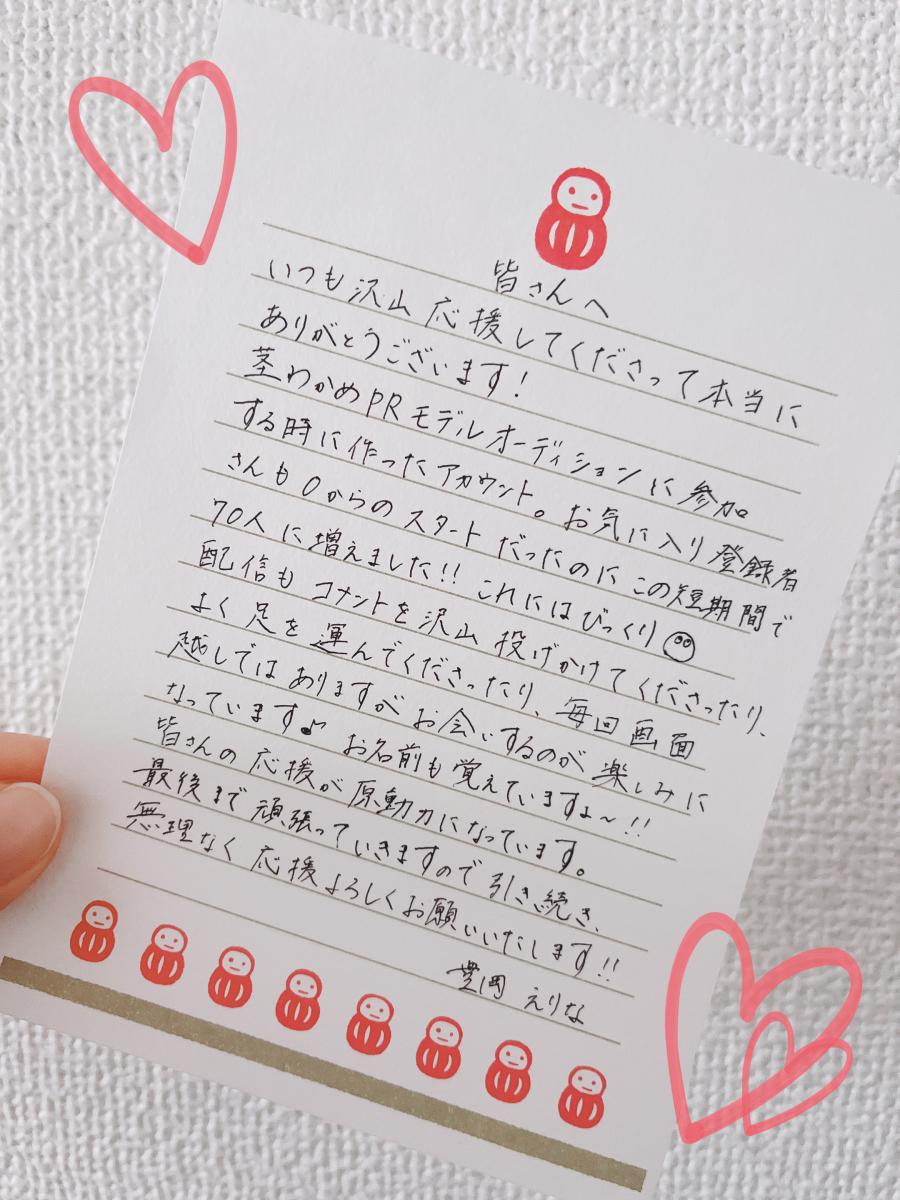 皆さんへ
いつも沢山応援してくださって本当に
ありがとうございます!
茎わかめPRモデルオーディションに参加
する時に作ったアカウント。お気に入り登録者
さんも0からのスタートだったのにこの短期間で
70人に増えました!! これにはびっくり
配信もコメントを沢山投げかけてくださったり、
よく足を運んでくださったり、毎回画面
越しではありますがお会いするのが楽しみに
なっています♪ お名前も覚えていますよ〜!!
皆さんの応援が原動力になっています。
最後まで頑張っていきますので引き続き、
無理なく応援よろしくお願いいたします!!
豊岡 えりな